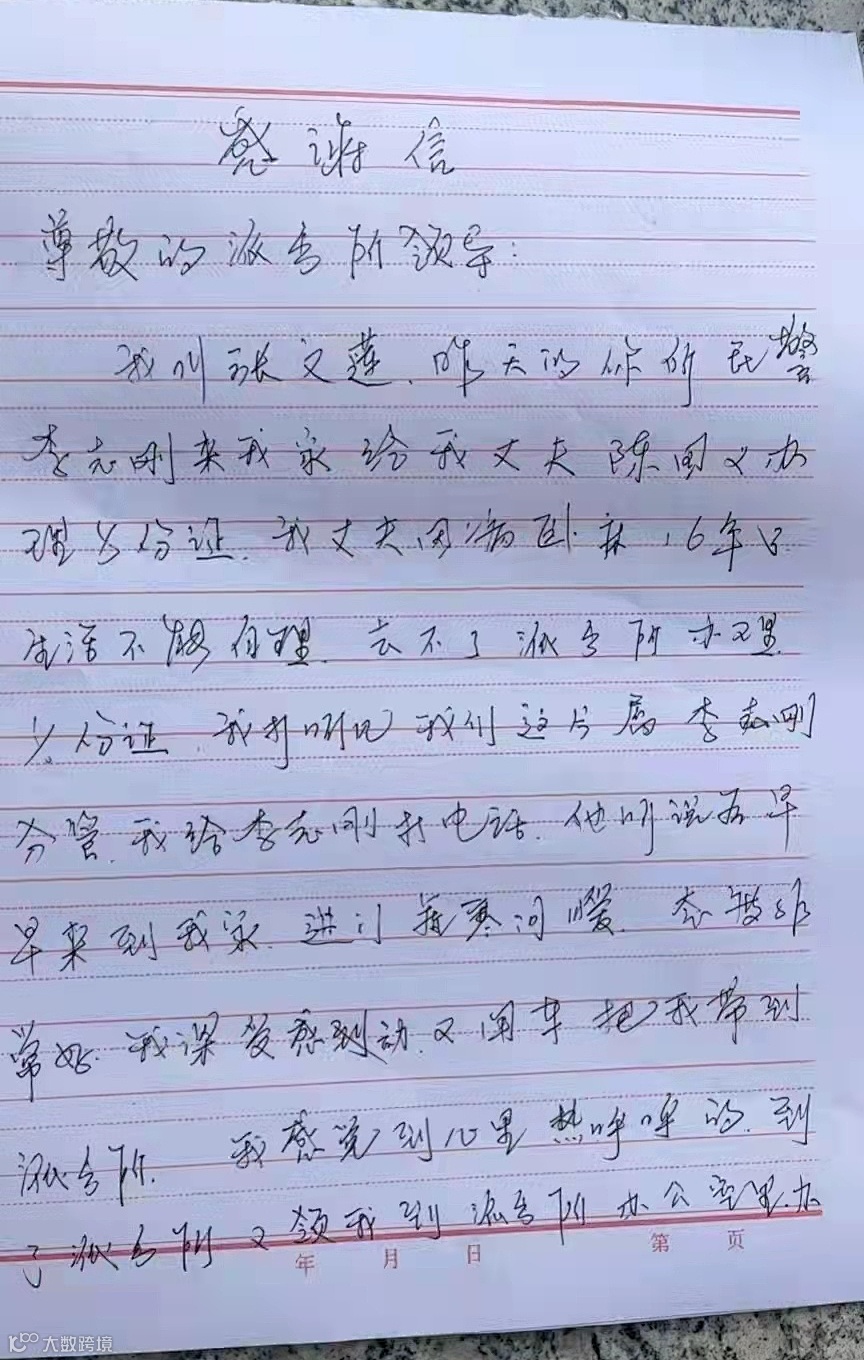 感谢信
尊敬的派出所领导:
我叫张文莲.昨天的你所民警
李志刚来我家给我丈夫陈国义办
理身份证.我丈夫因病卧床16年
生活不能自理.去不了派出所办理
身份证.我打听 我们这片属李志刚
分管.我给李志刚打电话.他听说后早
早来到我家.进门 寒问暖.态度非
常好.我深受感到动.又开车把我带到
派出所.我感觉到心里热呼呼的.到
了派出所又领我到派出所办公室里.办
年 月 日 第 页
大数跨境